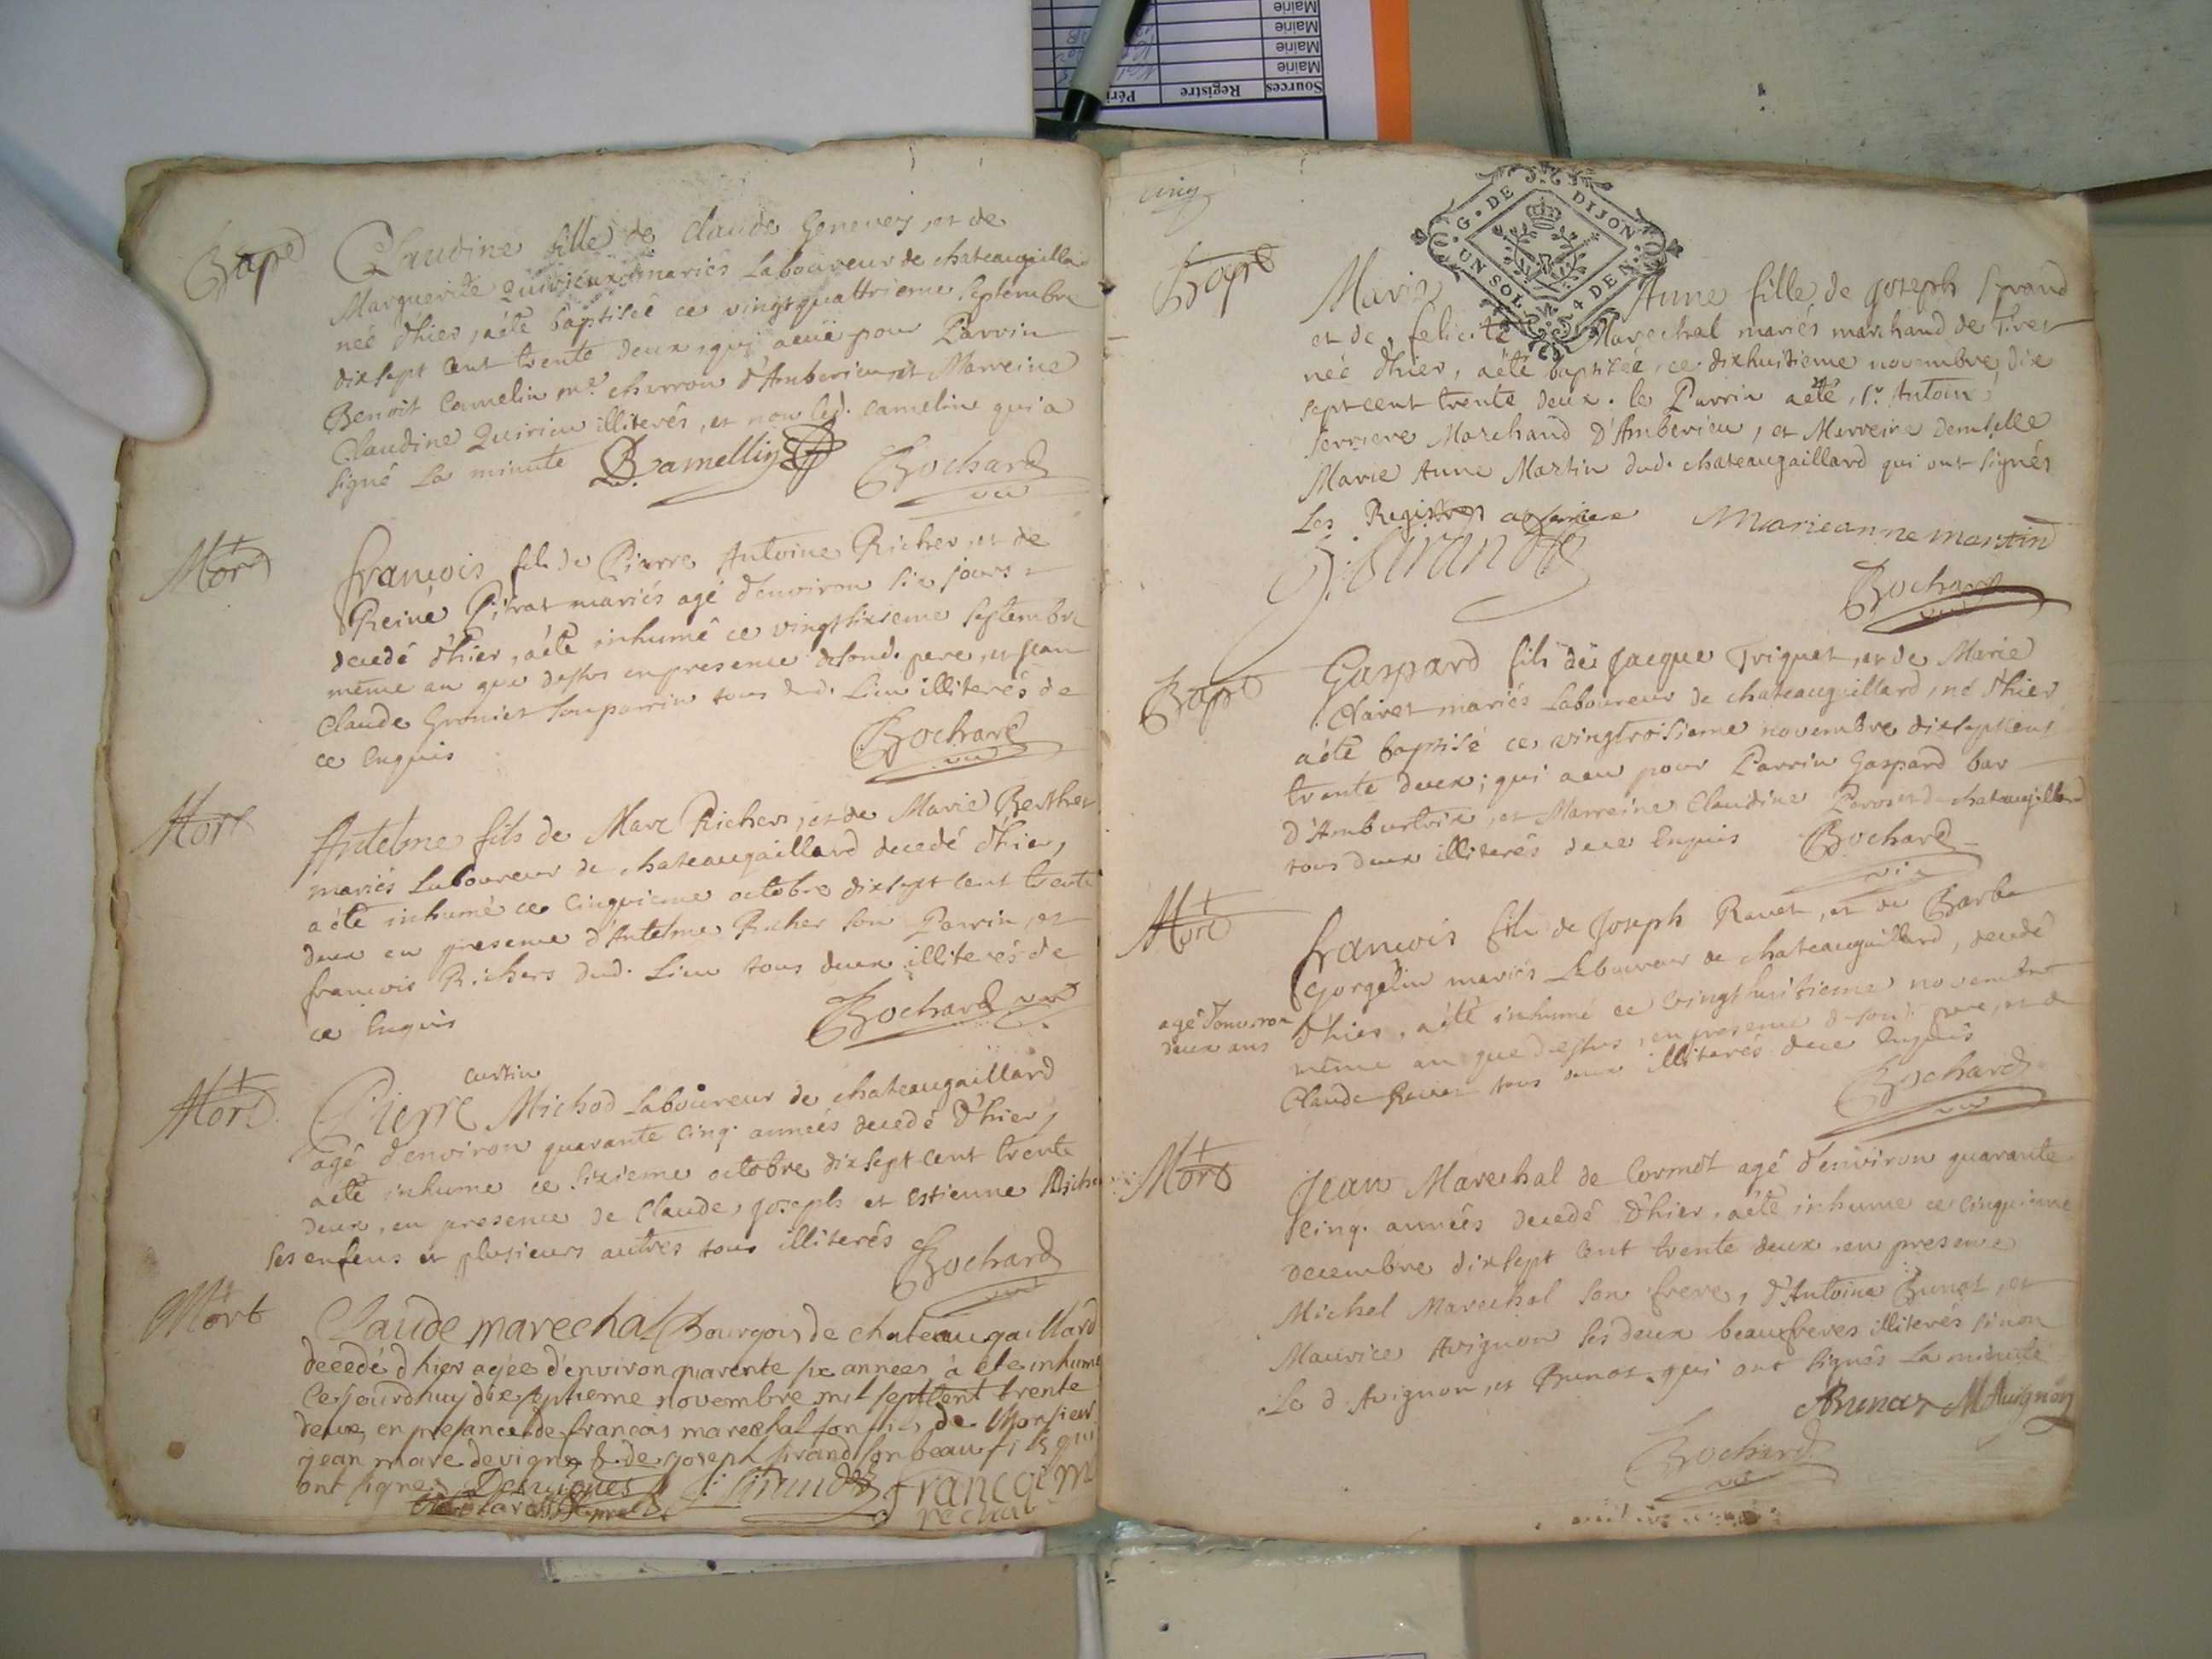 Mairie
Mairie
Mairie
Mairie
Sources Registre Péri
Bapt
Claudine fille de Claude Genevey, et de
Marguerite Quirieux mariés Laboureur de chateaugaillard
née d'hier, a été baptisée ce vingtquattrieme Septembre
dixsept cent trente deux, qui a eüe pour Parrin
Benoit Camelin me. charron d'Amberieu, et Marreine
Claudine Quirieu illiterés, et non led. Camelin qui a
signé la minute BCamellin Bochard
vic
Mort
françois fils de Pierre Antoine Richer, et de
Reine Pitrat mariés agé d'environ six jours
decedé d'hier, a été inhumé ce vingtsixieme Septembre
même an que dessus en presence de sond. pere, et Jean
Claude Groniet son parrin tous dud. Lieu illiterés de
ce Enquis Bochard
vic
Mort
Antelme fils de Marc Richers, et de Marie Berthet
mariés Laboureur de chateaugaillard decedé d'hier,
a été inhumé ce cinquieme octobre dixsept cent trente
deux en presence d'Antelme Richer son Parrin, et
françois Richers dud. Lieu tous deux illiterés de
ce Enquis Bochard vic
Mort
Curtin
Pierre Michod Laboureur de chateaugaillard
agé d'environ quarante cinq. années decedé d'hier,
a été inhumé ce sixieme octobre dixsept cent trente
deux, en presence de Claude, Joseph et Estienne Michod
ses enfens et plusieurs autres tous illiterés Bochard
vic
Mort
Claude marechal Bourgois de chateaugaillard
decedé dhier agée d'environ quarente six annees à été inhumé
cejourdhuy dix septieme novembre mil septcent trente
deux, en presance de francois marechal son fils, de Monsieur
jean marc devigne & de joseph sirand son beaufils qui
ont signez Devignes J. Sirand francoi m
rechal
cinq
G. DE DIJON
UN SOL 4 DEN.
Bapt
Marie Anne fille de Joseph Sirand
et de felicité Marechal mariés marchand de
née d'hier, a été baptisée, ce dixhuitieme novembre dix
sept cent trente deux. le Parrin a été, Sr. Antoine
ferriere Marchand d'Amberieu, et Marreine demselle
Marie Anne Martin dud. chateaugaillard qui ont signés
Les Registres Marieanne martin
J. Sirand
Bochard
vic
Bapt
Gaspard fils de Jacque Triquet, et de Marie
Claret mariés Laboureur de chateaugaillard, né d'hier
a été baptisé ce vingttroisieme novembre dixsept cent
trente deux; qui a eu pour Parrin Gaspard bar
d'Ambutrix, et Marreine Claudine de chateaugaillard
tous deux illiterés de ce Enquis Bochard
vic
Mort
françois fils de Joseph Ravet, et de Barbe
Gorgelin mariés Laboureur de chateaugaillard, decedé
agé d'environ
deux ans
d'hier, a été inhumé ce vingthuitieme novembre
même an que dessus, en presence de son d. pere, et de
Claude Ravet tous deux illiterés de ce Enquis
Bochard
vic
Mort
Jean Marechal de Cormot agé d'environ quarante
cinq. années decedé d'hier, a été inhumé ce cinquieme
decembre dixsept cent trente deux, en presence
Michel Marechal son frere, d'Antoine Brunot, et
Maurice Avignon ses deux beaufreres illiterés sinon
Le d. Avignon, et Brunot qui ont signés la minute
MAvignon
Bochard
vic